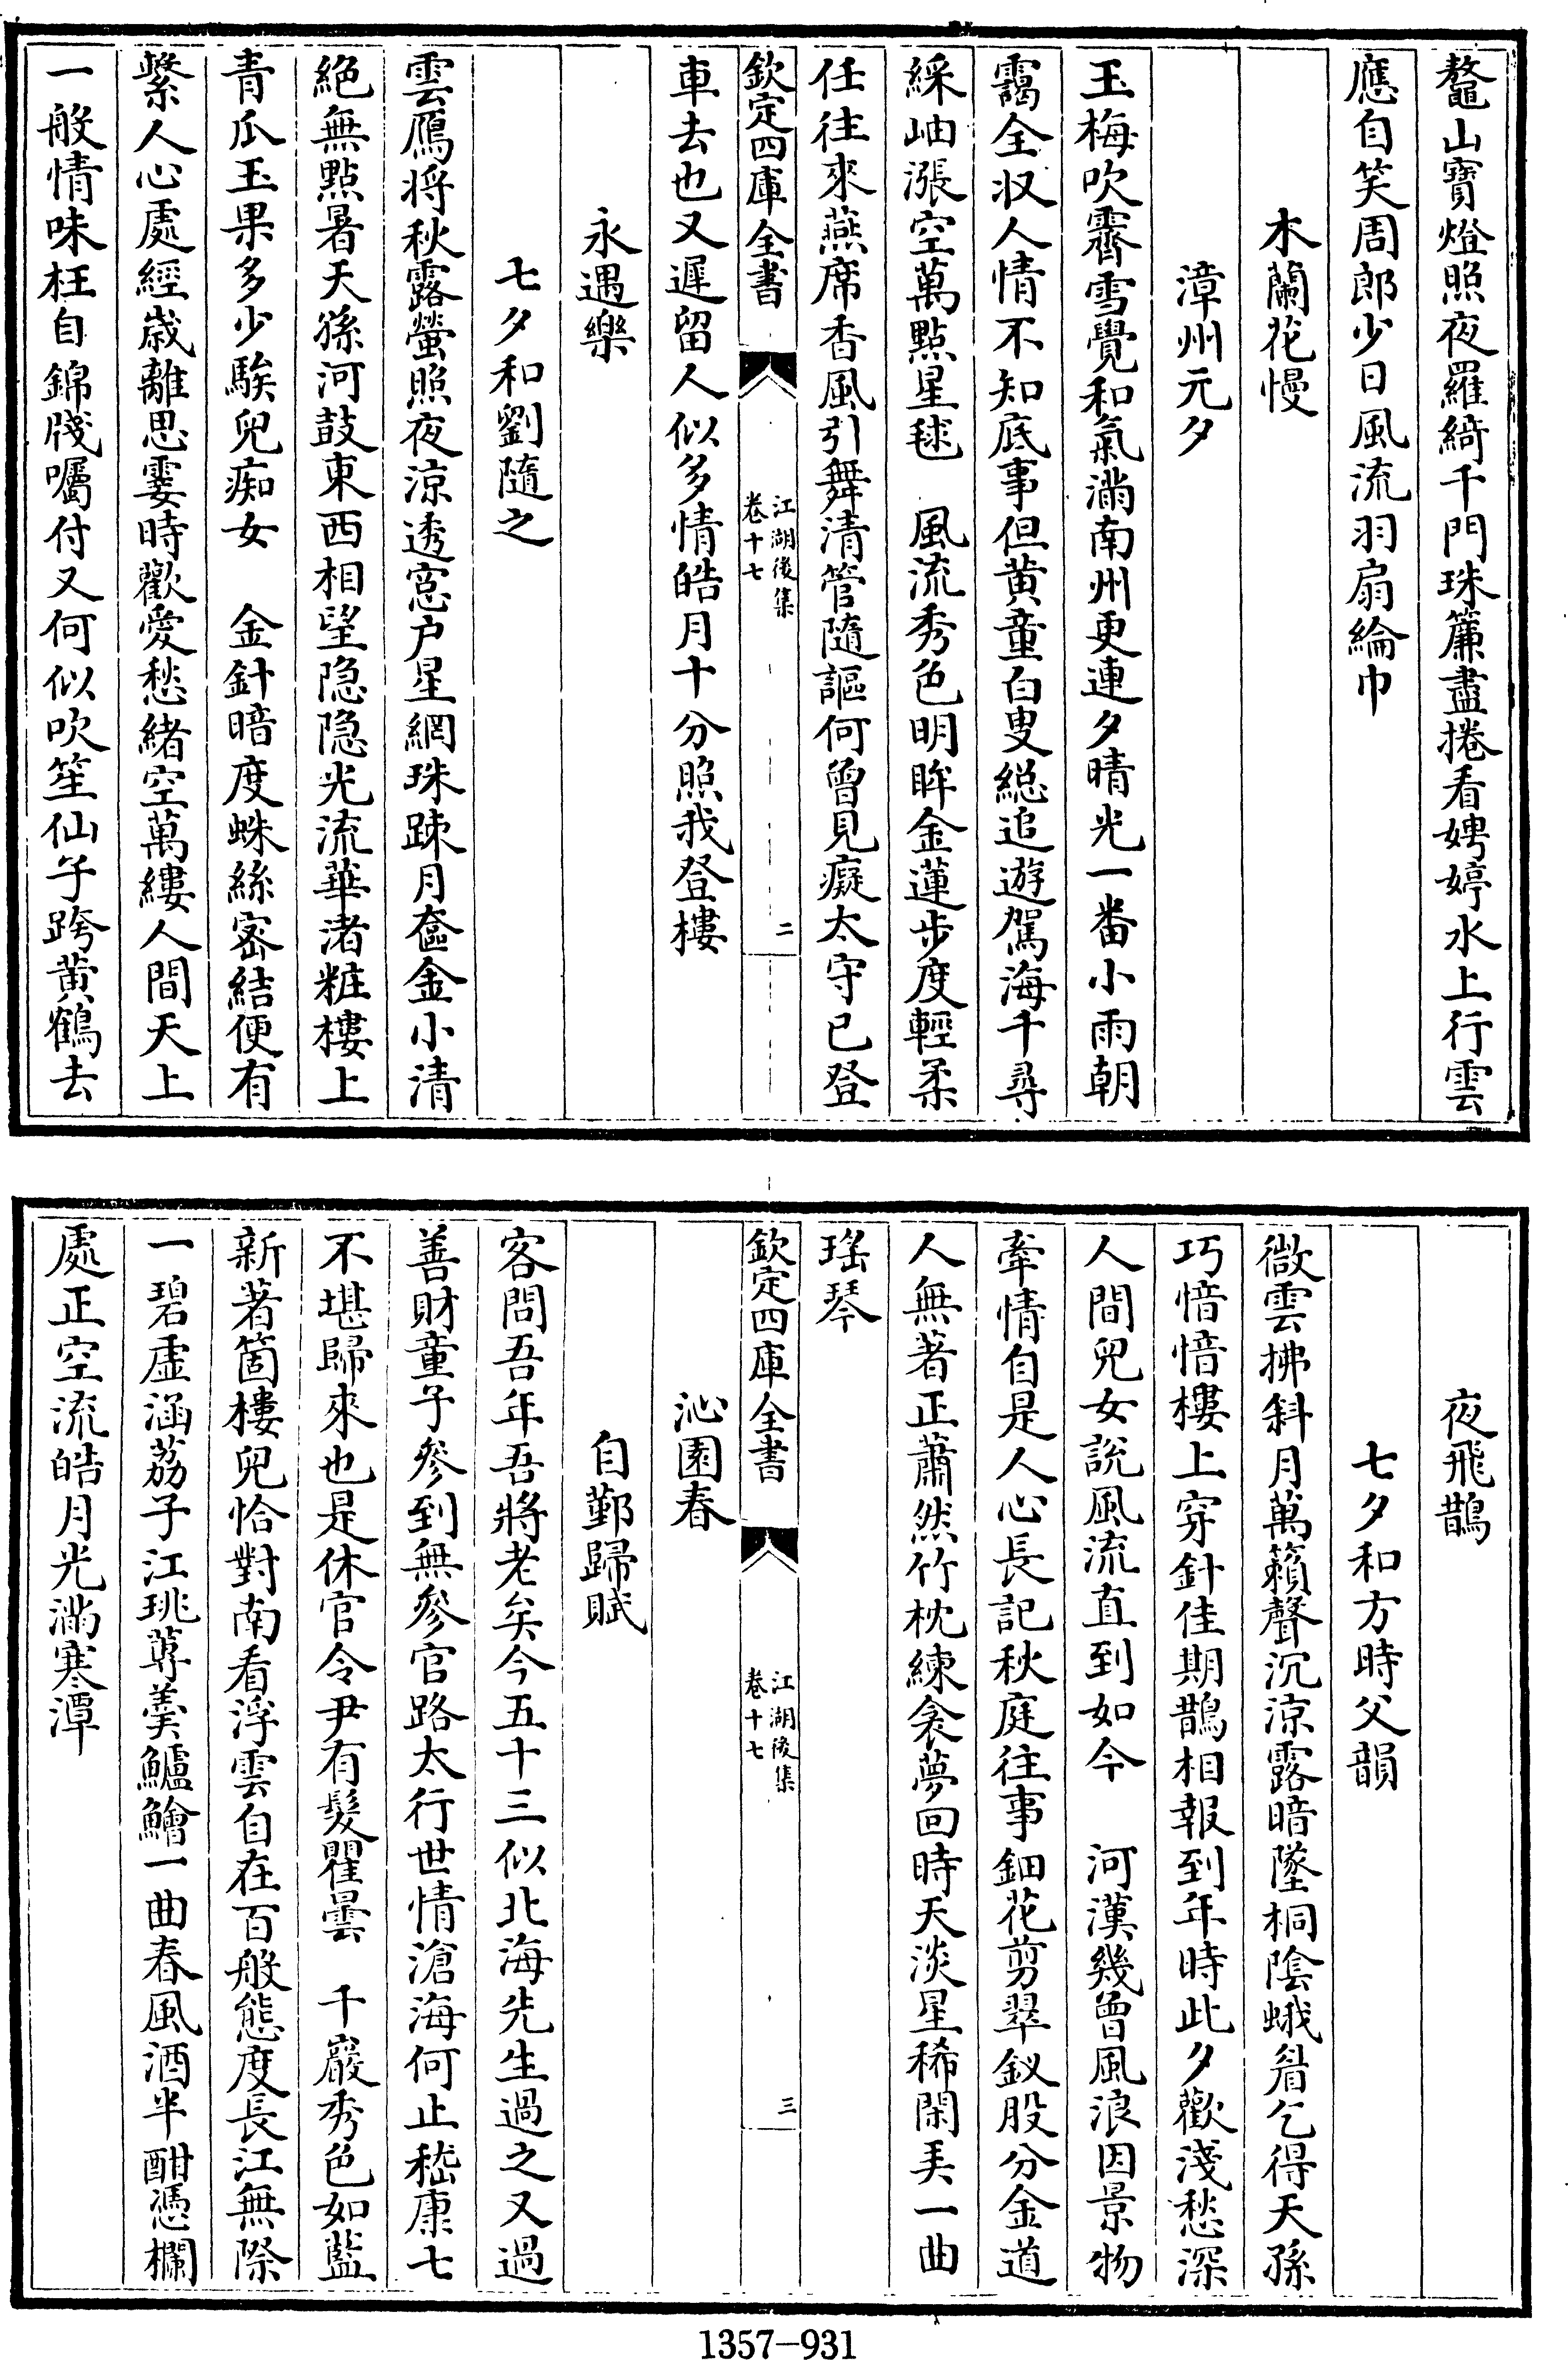 鼇山寶燈照夜羅綺千門珠簾盡捲看娉婷水上行雲
應自笑周郎少日風流羽扇綸巾
木蘭花慢
漳州元夕
玉梅吹霽雪覺和氣滿南州更連夕晴光一番小雨朝
靄全収人情不知底事但黄童白叟緫追遊駕海千尋
綵岫漲空萬點星毬　風流秀色明眸金蓮步度輕柔
任往來燕席香風引舞清管隨謳何曾見癡太守已登
欽定四庫全書
江湖後集
卷十七
二
車去也又遲留人似多情皓月十分照我登樓
永遇樂
七夕和劉隨之
雲鴈將秋露螢照夜涼透窓户星網珠踈月奩金小清
絶無點暑天孫河鼓東西相望隐隐光流華渚粧樓上
青瓜玉果多少騃兒痴女　金針暗度蛛絲宻結便有
繫人心處經歲離思霎時歡愛愁緒空萬縷人間天上
一般情味枉自錦牋囑付又何似吹笙仙子跨黄鶴去
夜飛鵲
七夕和方時父韻
微雲拂斜月萬籟聲沉涼露暗墜桐隂蛾眉乞得天孫
巧愔愔樓上穿針佳期鵲相報到年時此夕歡淺愁深
人間兒女說風流直到如今　河漢幾曾風浪因景物
牽情自是人心長記秋庭往事鈿花剪翠釵股分金道
人無著正蕭然竹枕練衾夢回時天淡星稀閑弄一曲
瑤琴
欽定四庫全書
江湖後集
卷十七
三
沁園春
自鄞歸賦
客問吾年吾將老矣今五十三似北海先生過之又過
善財童子參到無參官路太行世情滄海何止嵇康七
不堪歸來也是休官令尹有髮瞿曇　千巖秀色如藍
新著箇樓兒恰對南看浮雲自在百般態度長江無際
一碧虛涵荔子江珧蓴羹鱸鱠一曲春風酒半酣憑欄
處正空流皓月光滿寒潭
1357-931